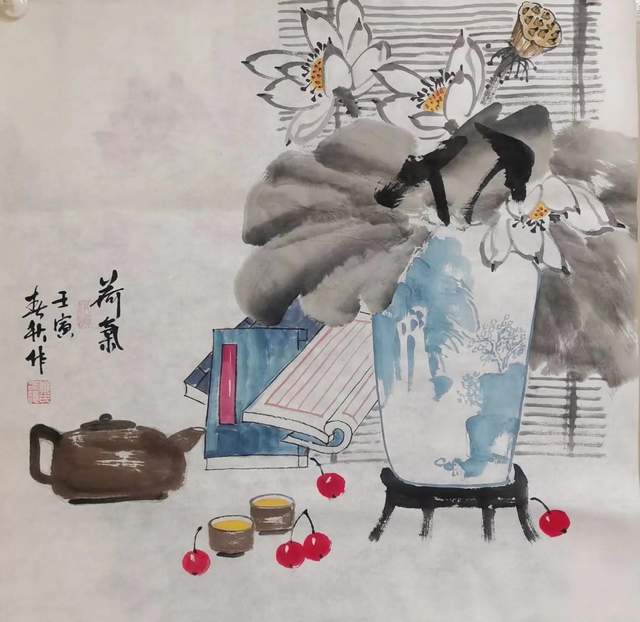 荷氣
壬寅
春秋作